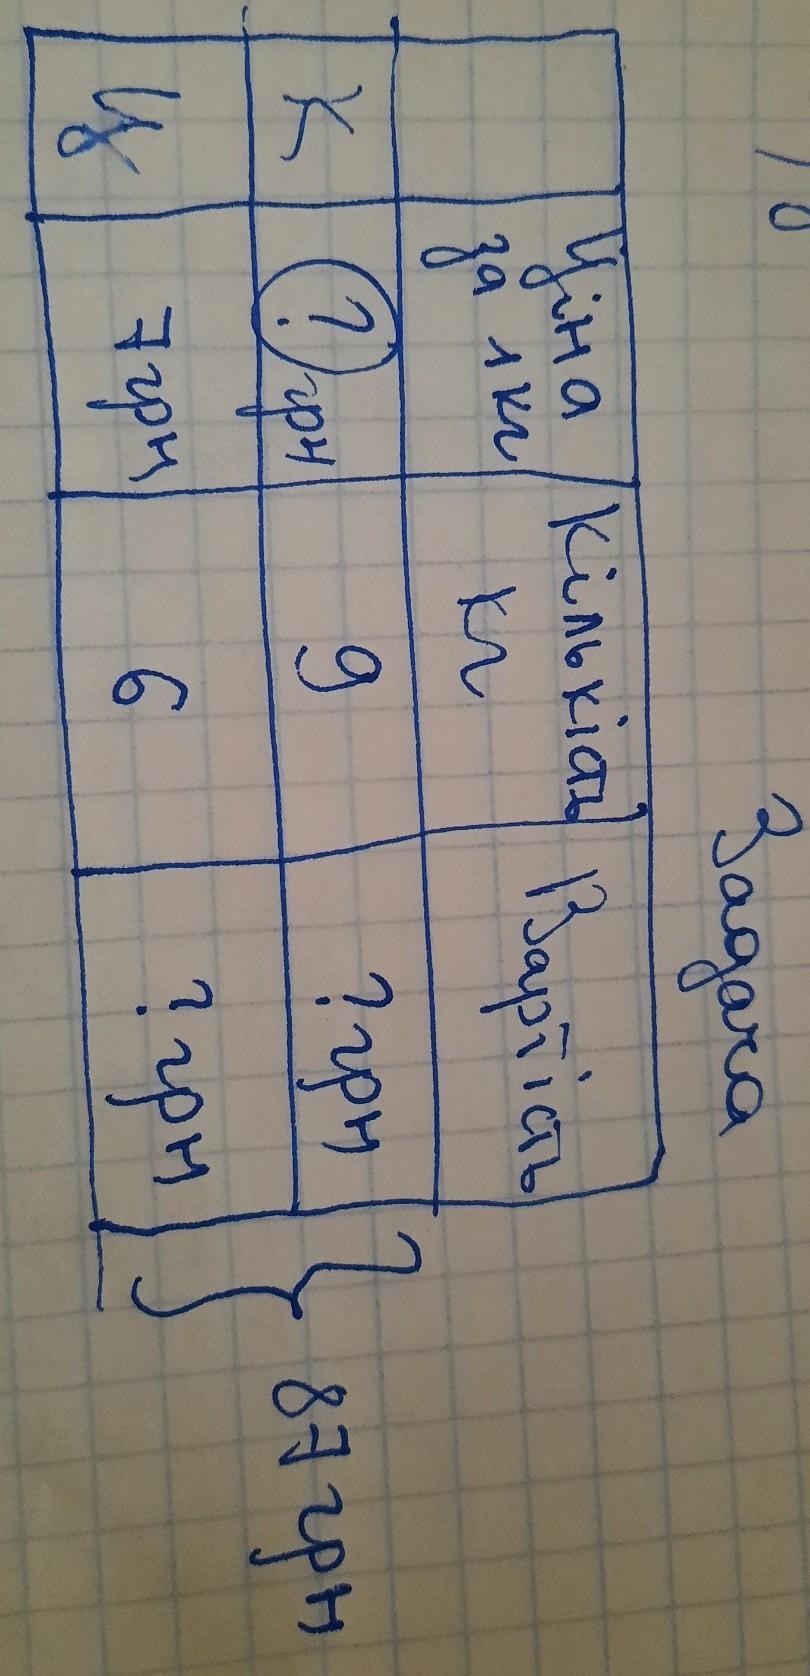 Задача
Ціна за 1 кг
Кількість кг
Вартість
К
? грн
9
? грн
Ц
7 грн
6
? грн
87 грн